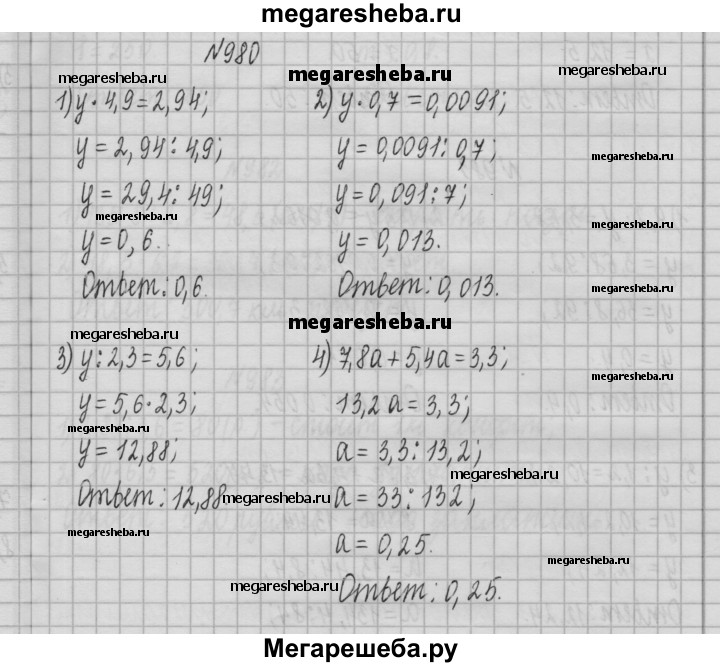 megaresheba.ru
N980
megaresheba.ru megaresheba.ru megaresheba.ru
1) y · 4,9 = 2,94;
y = 2,94 : 4,9;
y = 29,4 : 49;
megaresheba.ru
y = 0,6.
Ответ: 0,6.
2) y · 0,7 = 0,0091;
y = 0,0091 : 0,7;
megaresheba.ru
y = 0,091 : 7;
megaresheba.ru
y = 0,013.
Ответ: 0,013.
megaresheba.ru
megaresheba.ru
megaresheba.ru
3) y : 2,3 = 5,6;
y = 5,6 · 2,3;
y = 12,88;
Ответ: 12,88.
megaresheba.ru
megaresheba.ru
4) 7,8a + 5,4a = 3,3;
megaresheba.ru
13,2 a = 3,3;
a = 3,3 : 13,2;
megaresheba.ru
a = 33 : 132;
a = 0,25.
megaresheba.ru
megaresheba.ru
Ответ: 0,25.
Мегарешеба.ру